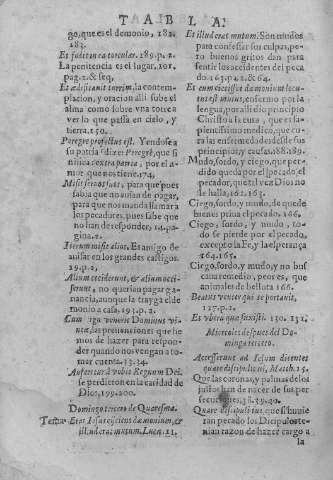 TABLA.
go, que es el demonio, 182.
183.
Et fodit in ea torcular. 189. p. 2.
La penitencia es el lugar, 101.
pag. 2. & seq.
Et ædificauit turrim, la contem-
placion, y oracion alli sube el
alma como sobre vna torre a
ver lo que passa en cielo, y
tierra, 150.
Peregre profectus est. Yendose a
su patria dize: Peregrè, que si
nifica contra patria. por el a-
mor que nos tiene, 174.
Misit seruos suos, para que pues
sabia que no auian de pagar,
para que nos manda llamar a
los pecadores, pues sabe que
no han de responder, 14. pa-
gina. 2.
Iterum misit alios. Es amigo de
auisar en los grandes castigos.
19. p. 2.
Alium occiderunt, & alium occi-
serunt, no querian pagar ga-
nancia, aunque la trayga el de
monio a casa, 193. p. 2.
Cum ergo venerit Dominus vi-
neæ, las prenunciones que he
mos de hazer para respon-
der quando nos vengan a to-
mar cuenta. 13. 34.
Auferetur à vobis Regnum Dei.
se perdieron en la caridad de
Dios, 199. 200.
Domingo tercero de Quaresma.
Erat Iesus eijciens dæmonium, &
illud erat mutum. Luc. 11.
Et illud erat mutum. Son mudos
para confessar sus culpas, pe-
ro buenos gritos dan para
sentir los accidentes del peca
do. 163. p. 2. & 64.
Et cum eiecisset dæmonium locu-
tus est mutus, enfermo por la
lengua, por alli dio principio
Christo a la cura, que es sa-
pientissimo medico, que cu-
ra las enfermedades del prin-
cipio, y causa de ellas. 188. 189.
Mudo, sordo, y ciego, que per-
dido queda por el pecado, el
pecador, que si el vez Dios no
se halla, 162. 163.
Ciego, sordo, y mudo, de que de
bienes priua el pecado. 166.
Ciego, sordo, y mudo, to-
do se pierde por el pecado,
excepto la Fè, y la esperança
164. 165.
Ciego, sordo, y mudo, y no bus
ca su remedio, peor es, que
animales de bellota 166.
Beatus venter qui te portauit.
127. p. 2.
Et vbera quæ suxisti. 130. 131.
Miercoles despues del Do-
mingo tercero.
Accesserunt ad Iesum dicentes
quare discipuli tui, Matth. 15.
Que las coronas, y palmas de los
justos han de nacer de sus per
secuciones, 38. 39. 40.
Quare discipuli tui que si huuie
ran pecado los Dicipulos te-
nian razon de hazer cargo a
la